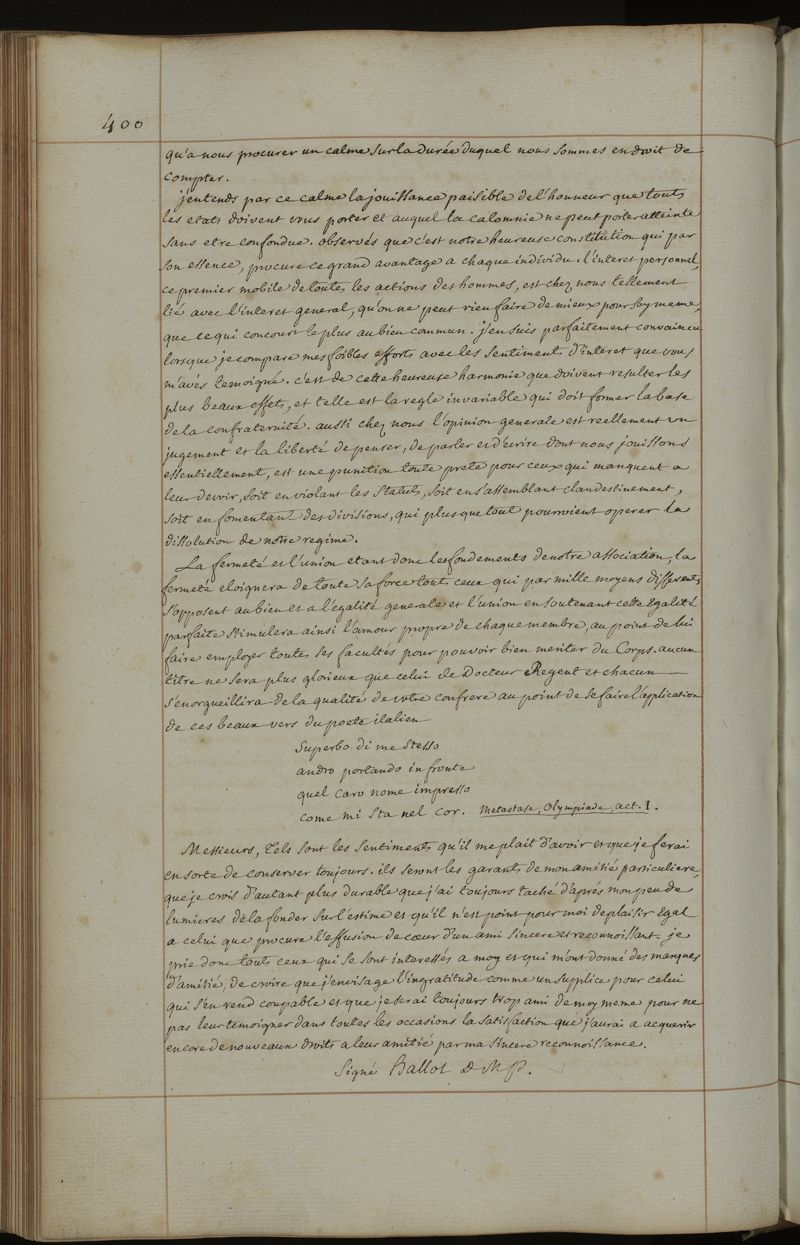 400
qu'a nous procurer un calme sur la durée duquel nous sommes en droit de
compter.
j'entends par ce calme la jouissance paisible de l'honneur que touts
les etats doivent vous porter et auquel la calomnie ne peut porter atteinte
sans etre confondue. observés que c'est notre heureuse constitution qui par
son essence, procure ce grand avantage a chaque individu. l'interet personnel,
ce premier mobile de toutes les actions des hommes, est chez nous tellement
lié avec l'interet general, qu'on ne peut rien faire de mieux pour soy meme,
que ce qui concourt le plus au bien commun. j'en suis parfaitement convaincu
lorsque je compare mes foibles efforts avec les sentiments d'interet que vous
m'avés temoigné. c'est de cette heureuse harmonie que doivent resulter les
plus beaux effets, et telle est la regle invariable qui doit former la base
de la confraternité. aussi chez nous l'opinion generale est reellement un
jugement et la liberté de penser, de parler et d'ecrire dont nous jouissons
essentiellement, est une punition toute prete pour ceux qui manquent a
leur devoir, soit en violant les statuts, soit en s'assemblant clandestinement,
soit en fomentant des divisions, qui plus que tout pourroient operer la
dissolution de notre regime.
La fermeté et l'union etant donc les fondements de notre association, la
fermeté eloignera de toute sa force tout ceux qui par mille moyens differents,
s'opposent au bien et a l'egalité generale et l'union en soutenant cette Egalité
parfaite stimulera ainsi l'amour propre de chaque membre, au point de lui
faire employer toutes ses facultés pour pouvoir bien meriter du Corps. aucun
titre ne sera plus glorieux que celui de Docteur Regent et chacun
s'enorgueillira de la qualité de votre confrere au point de se faire l'application
de ces beaux vers du poete italien
Superbo di me stesso
andro portando in fronte
quel caro nome impresso
come mi sta nel cor. Metastase, Olympiade, act. I.
Messieurs, Tels sont les sentiments qu'il me plait d'avoir et que je ferai
en sorte de conserver toujours. ils seront les garants de mon amitié particuliere,
que je crois d'autant plus durable que j'ai toujours taché d'aprés mon peu de
lumieres de la fonder sur l'estime et qu'il n'est point pour moi de plaisir egal
a celui que procure l'effusion de cœur d'un ami sincere et reconnoissant. je
prie donc touts ceux qui se sont interessés a moy et qui m'ont donné des marques
d'amitié, de croire que j'envisage l'ingratitude comme un supplice pour celui
qui s'en rend coupable et que je serai toujours trop ami de moy meme pour ne
pas leur temoigner dans toutes les occasions la satisfaction que j'aurai a acquerir
encore de nouveaux droits a leur amitié par ma sincere reconnoissance.
Signé Ballot D M P.